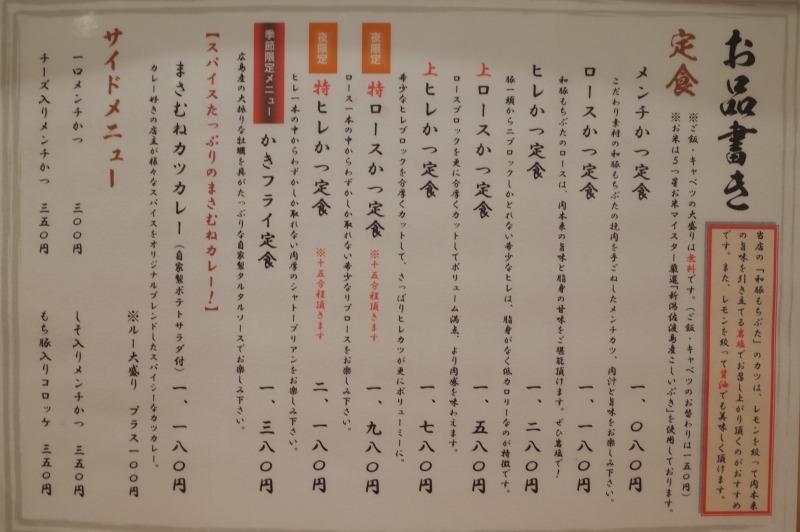 お品書き
当店の「和豚もちぶた」のカツは、レモンを絞って肉本来
の旨味を引き立てる岩塩でお召し上がり頂くのがおすすめ
です。また、レモンを絞って醤油でも美味しく頂けます。
定食
※ご飯・キャベツの大盛りは無料です。(ご飯・キャベツのお替わりは一五〇円)
※お米は5つ星お米マイスター厳選「新潟佐渡島産こしいぶき」を使用しております。
メンチかつ定食 一、〇八〇円
こだわり素材の和豚もちぶたの挽肉を手ごねしたメンチカツ、肉汁と旨味をお楽しみ下さい。
ロースかつ定食 一、一八〇円
和豚もちぶたのロースは、肉本来の旨味と脂身の甘味をご堪能頂けます。ぜひ岩塩で!
ヒレかつ定食 一、二八〇円
豚一頭から二ブロックしかとれない希少なヒレは、脂身がなく低カロリーなのが特徴です。
上ロースかつ定食 一、五八〇円
ロースブロックを更に分厚くカットしてボリューム満点、より肉感を味わえます。
上ヒレかつ定食 一、七八〇円
希少なヒレブロックを分厚くカットして、さっぱりヒレカツが更にボリューミーに。
夜限定
特ロースかつ定食 ※十五分程頂きます 一、九八〇円
ロース一本の中からわずかしか取れない希少なリブロースをお楽しみ下さい。
夜限定
特ヒレかつ定食 ※十五分程頂きます 二、一八〇円
ヒレ一本の中からわずかしか取れない肉厚のシャトーブリアンをお楽しみ下さい。
季節限定メニュー
かきフライ定食 一、三八〇円
広島産の大振りな牡蠣を具がたっぷりな自家製タルタルソースでお楽しみ下さい。
【スパイスたっぷりのまさむねカレー!】
まさむねカツカレー(自家製ポテトサラダ付) 一、一八〇円
カレー好きの店主が様々なスパイスをオリジナルブレンドしたスパイシーなカツカレー。
※ルー大盛り プラス一〇〇円
サイドメニュー
一口メンチかつ 三〇〇円
しそ入りメンチかつ 三五〇円
チーズ入りメンチかつ 三五〇円
もち豚入りコロッケ 三五〇円